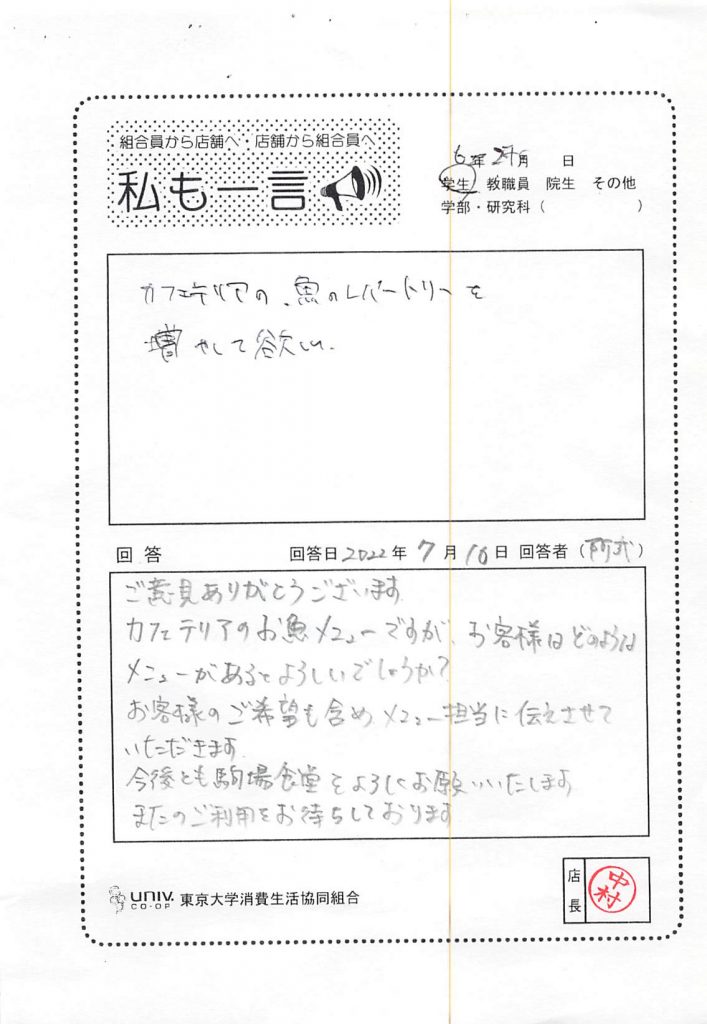 組合員から店舗へ・店舗から組合員へ
私も一言
年 月 日
学生 教職員 院生 その他
学部・研究科（ ）
カフェテリアの、魚のレパートリーを
増やして欲しい。
回答 回答日 2022年 7月 10日 回答者（ ）
ご意見ありがとうございます
カフェテリアのお魚メニューですが、お客様はどのような
メニューがあるとよろしいでしょうか？
お客様のご希望も含めメニュー担当に伝えさせて
いただきます
今後とも駒場食堂をよろしくお願いいたします
またのご利用をお待ちしております
店長
中村
UNIV. CO-OP 東京大学消費生活協同組合